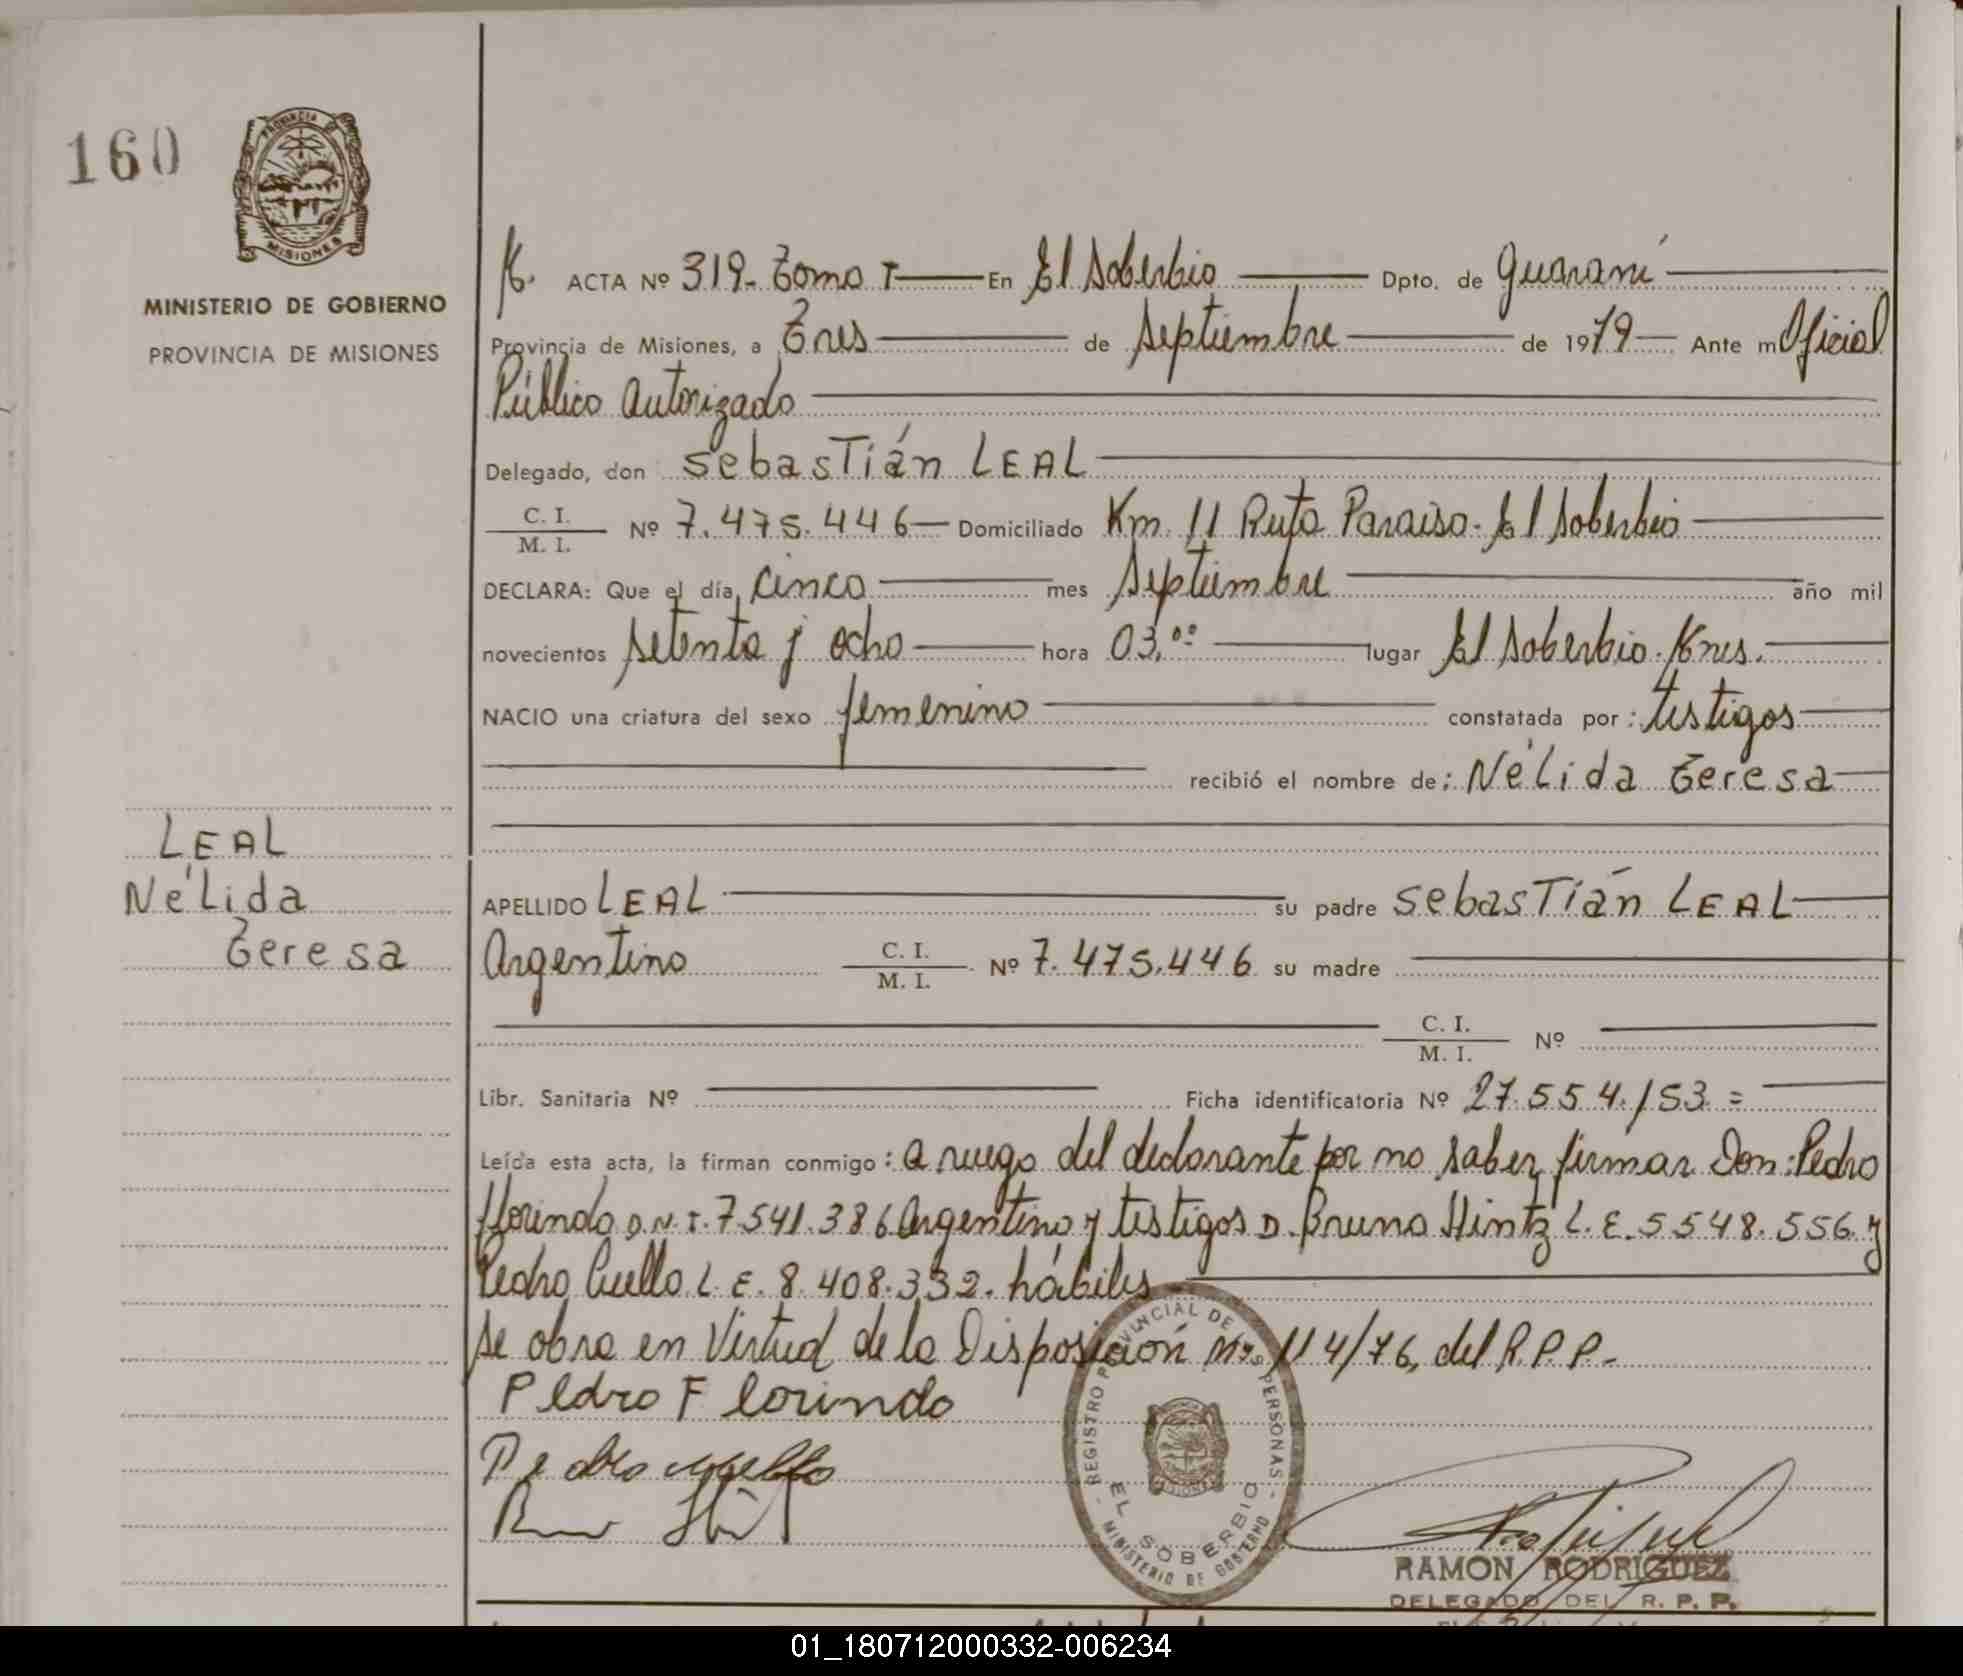 160
PROVINCIA DE
MISIONES
MINISTERIO DE GOBIERNO
PROVINCIA DE MISIONES
ACTA Nº 319- Tomo I En El Soberbio Dpto. de Guaraní
Provincia de Misiones, a Tres de Septiembre de 1979 Ante m Oficial
Público Autorizado
Delegado, don Sebastián LEAL
C. I.
M. I. Nº 7.475.446 Domiciliado Km. 11 Ruta Paraiso. El Soberbio
DECLARA: Que el día, cinco mes Septiembre año mil
novecientos setenta y ocho hora 03,00 lugar El Soberbio. Mnes.
NACIO una criatura del sexo femenino constatada por: testigos
recibió el nombre de: Nélida Teresa
LEAL
Nélida
Teresa
APELLIDO LEAL su padre Sebastián LEAL
Argentino C. I.
M. I. Nº 7.475.446 su madre
C. I.
M. I. Nº
Libr. Sanitaria Nº Ficha identificatoria Nº 27.554.153 =
Leída esta acta, la firman conmigo: a ruego del declarante por no saber firmar Don: Pedro
Florindo D.N.I. 7.541.386 Argentino y testigos D. Bruno Hintz L.E. 5548.556. y
Pedro Cuello L.E. 8.408.332. hábiles
Se obra en Virtud de la Disposición Nº 114/76, del R.P.P.-
Pedro Florindo
Pedro Cuello
REGISTRO PROVINCIAL DE LAS PERSONAS
EL SOBERBIO
MINISTERIO DE GOBIERNO
MISIONES
RAMON RODRIGUEZ
DELEGADO DEL R. P. P.
01_180712000332-006234